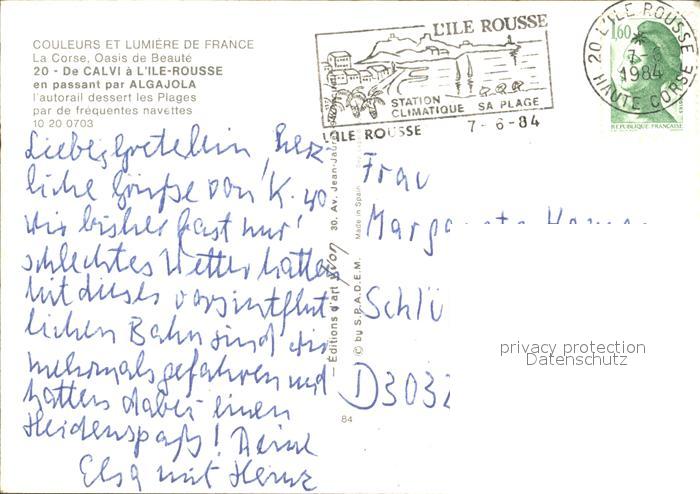 COULEURS ET LUMIÈRE DE FRANCE
La Corse, Oasis de Beauté
20 - De CALVI à L'ILE-ROUSSE
en passant par ALGAJOLA
l'autorail dessert les Plages
par de fréquentes navettes
10 20 0703
L'ILE ROUSSE
STATION
CLIMATIQUE SA PLAGE
L'ILE ROUSSE 7-6-84
20 L'ILE ROUSSE
7-6
1984
HAUTE CORSE
1,60
REPUBLIQUE FRANÇAISE
Liebes Gretellein, Herz
liche Grüße von K. wo
wir bisher fast nur
schlechtes Wetter hatten
Mit dieses vorsintflut
lichen Bahn sind wir
mehrmals gefahren und
hatten dabei einen
Heidenspaß! Deine
Elsa mit Heinz
Editions d'art yvon 30, Av. Jean-Jaurès
© by S.P.A.D.E.M. Made in Spain
84
Frau
Schlü
D3032
privacy protection
Datenschutz